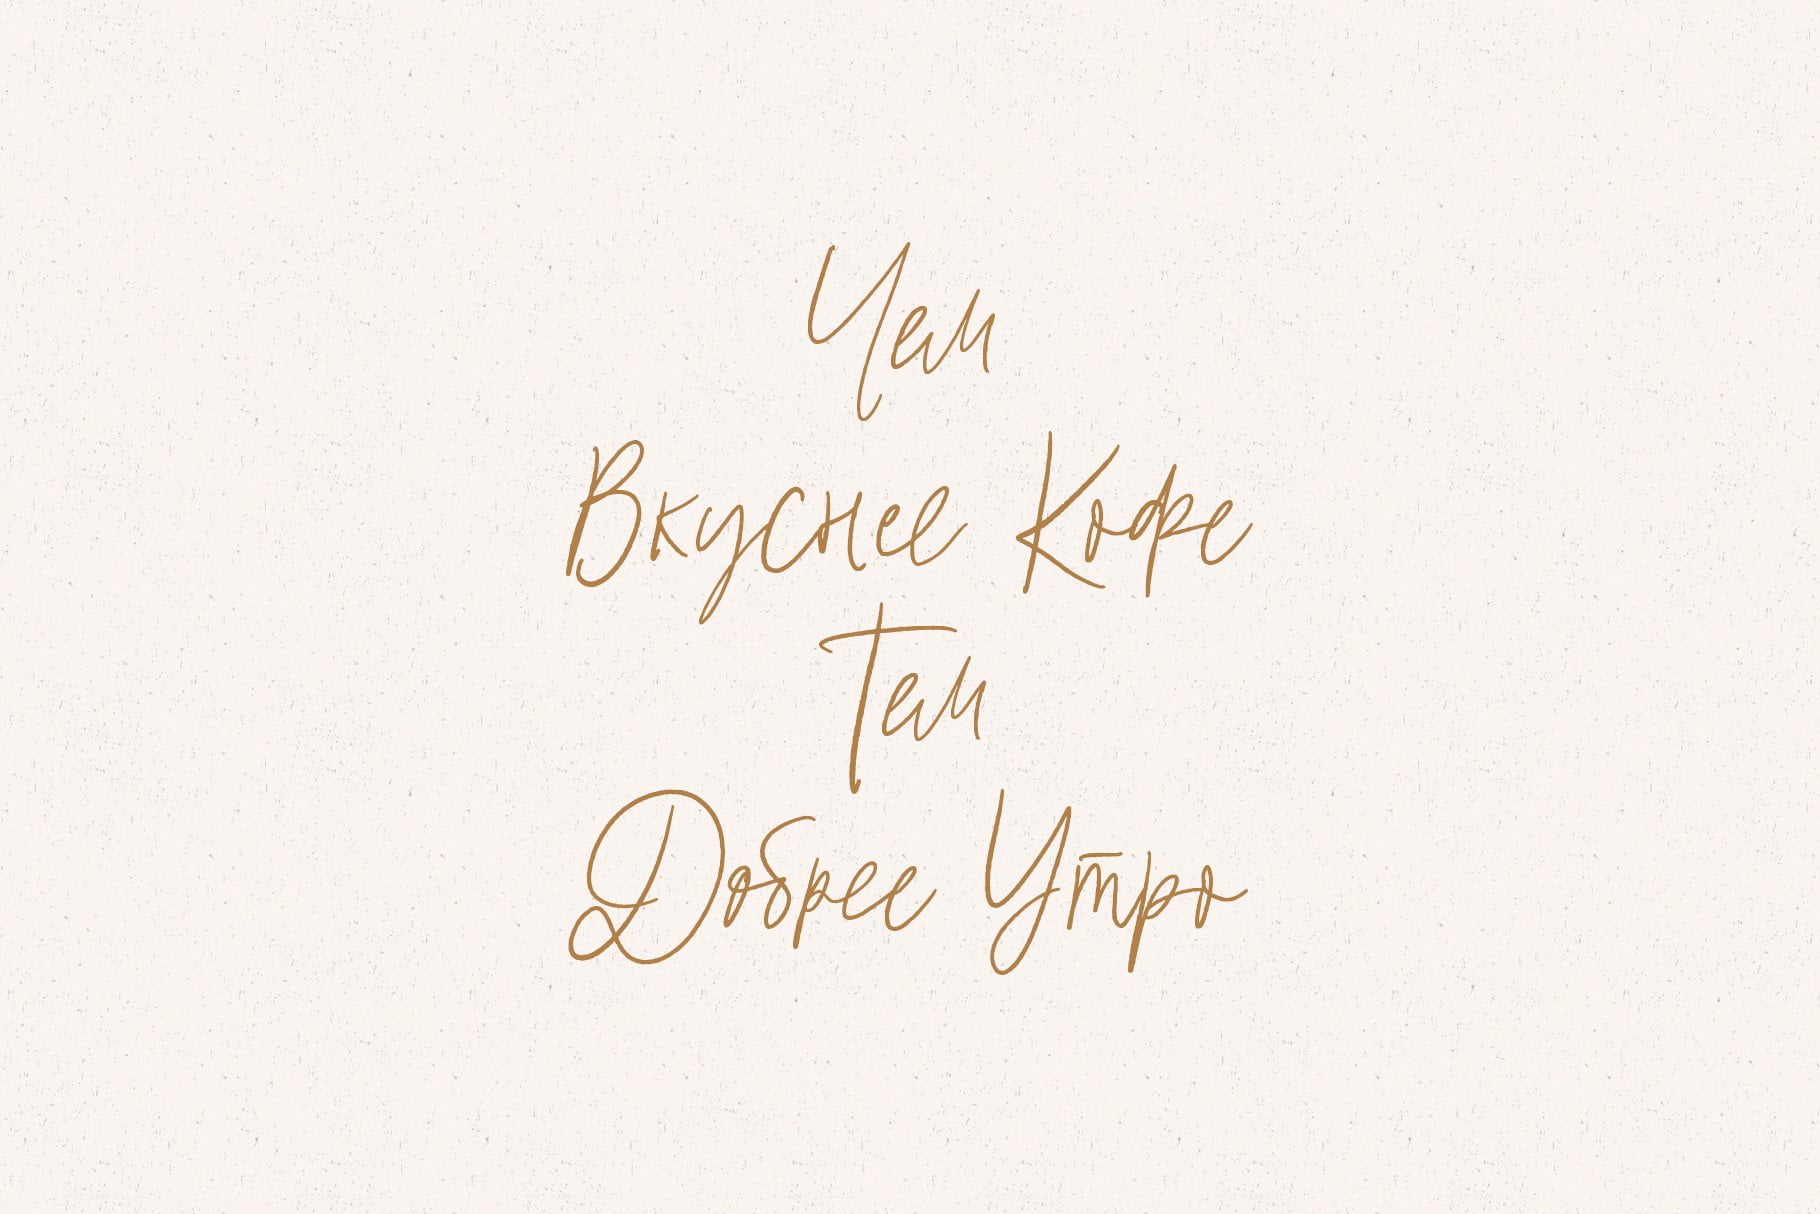 Чем
Вкуснее Кофе
Тем
Добрее Утро